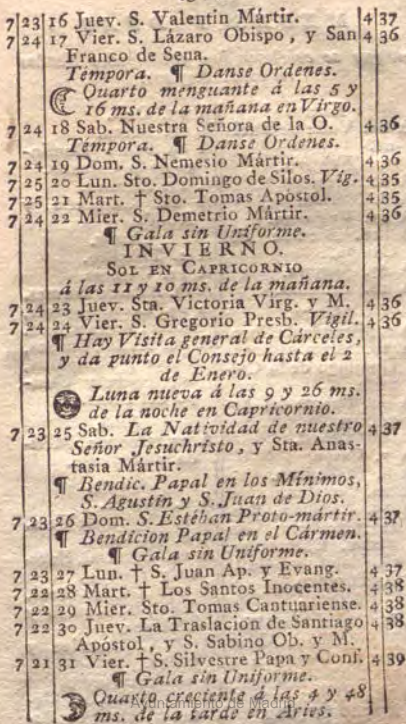 7 23 16 Juev. S. Valentin Mártir. 4 37
7 24 17 Vier. S. Lázaro Obispo, y San 4 36
Franco de Sena.
Témpora. ¶ Danse Ordenes.
Quarto menguante á las 5 y
16 ms. de la mañana en Virgo.
7 24 18 Sab. Nuestra Señora de la O. 4 36
Témpora. ¶ Danse Ordenes.
7 24 19 Dom. S. Nemesio Mártir. 4 36
7 25 20 Lun. Sto. Domingo de Silos. Vig. 4 35
7 25 21 Mart. † Sto. Tomas Apóstol. 4 35
7 24 22 Mier. S. Demetrio Mártir. 4 36
¶ Gala sin Uniforme.
INVIERNO.
SOL EN CAPRICORNIO
á las 11 y 10 ms. de la mañana.
7 24 23 Juev. Sta. Victoria Virg. y M. 4 36
7 24 24 Vier. S. Gregorio Presb. Vigil. 4 36
¶ Hay Visita general de Cárceles,
y da punto el Consejo hasta el 2
de Enero.
Luna nueva á las 9 y 26 ms.
de la noche en Capricornio.
7 23 25 Sab. La Natividad de nuestro 4 37
Señor Jesuchristo, y Sta. Anas-
tasia Mártir.
¶ Bendic. Papal en los Mínimos,
S. Agustin y S. Juan de Dios.
7 23 26 Dom. S. Estéban Proto-mártir. 4 37
¶ Bendicion Papal en el Cármen.
¶ Gala sin Uniforme.
7 23 27 Lun. † S. Juan Ap. y Evang. 4 37
7 22 28 Mart. † Los Santos Inocentes. 4 38
7 22 29 Mier. Sto. Tomas Cantuariense. 4 38
7 22 30 Juev. La Traslacion de Santiago 4 38
Apóstol, y S. Sabino Ob. y M.
7 21 31 Vier. † S. Silvestre Papa y Conf. 4 39
¶ Gala sin Uniforme.
Quarto creciente á las 4 y 48
ms. de la tarde en Aries.
Ayuntamiento de Madrid